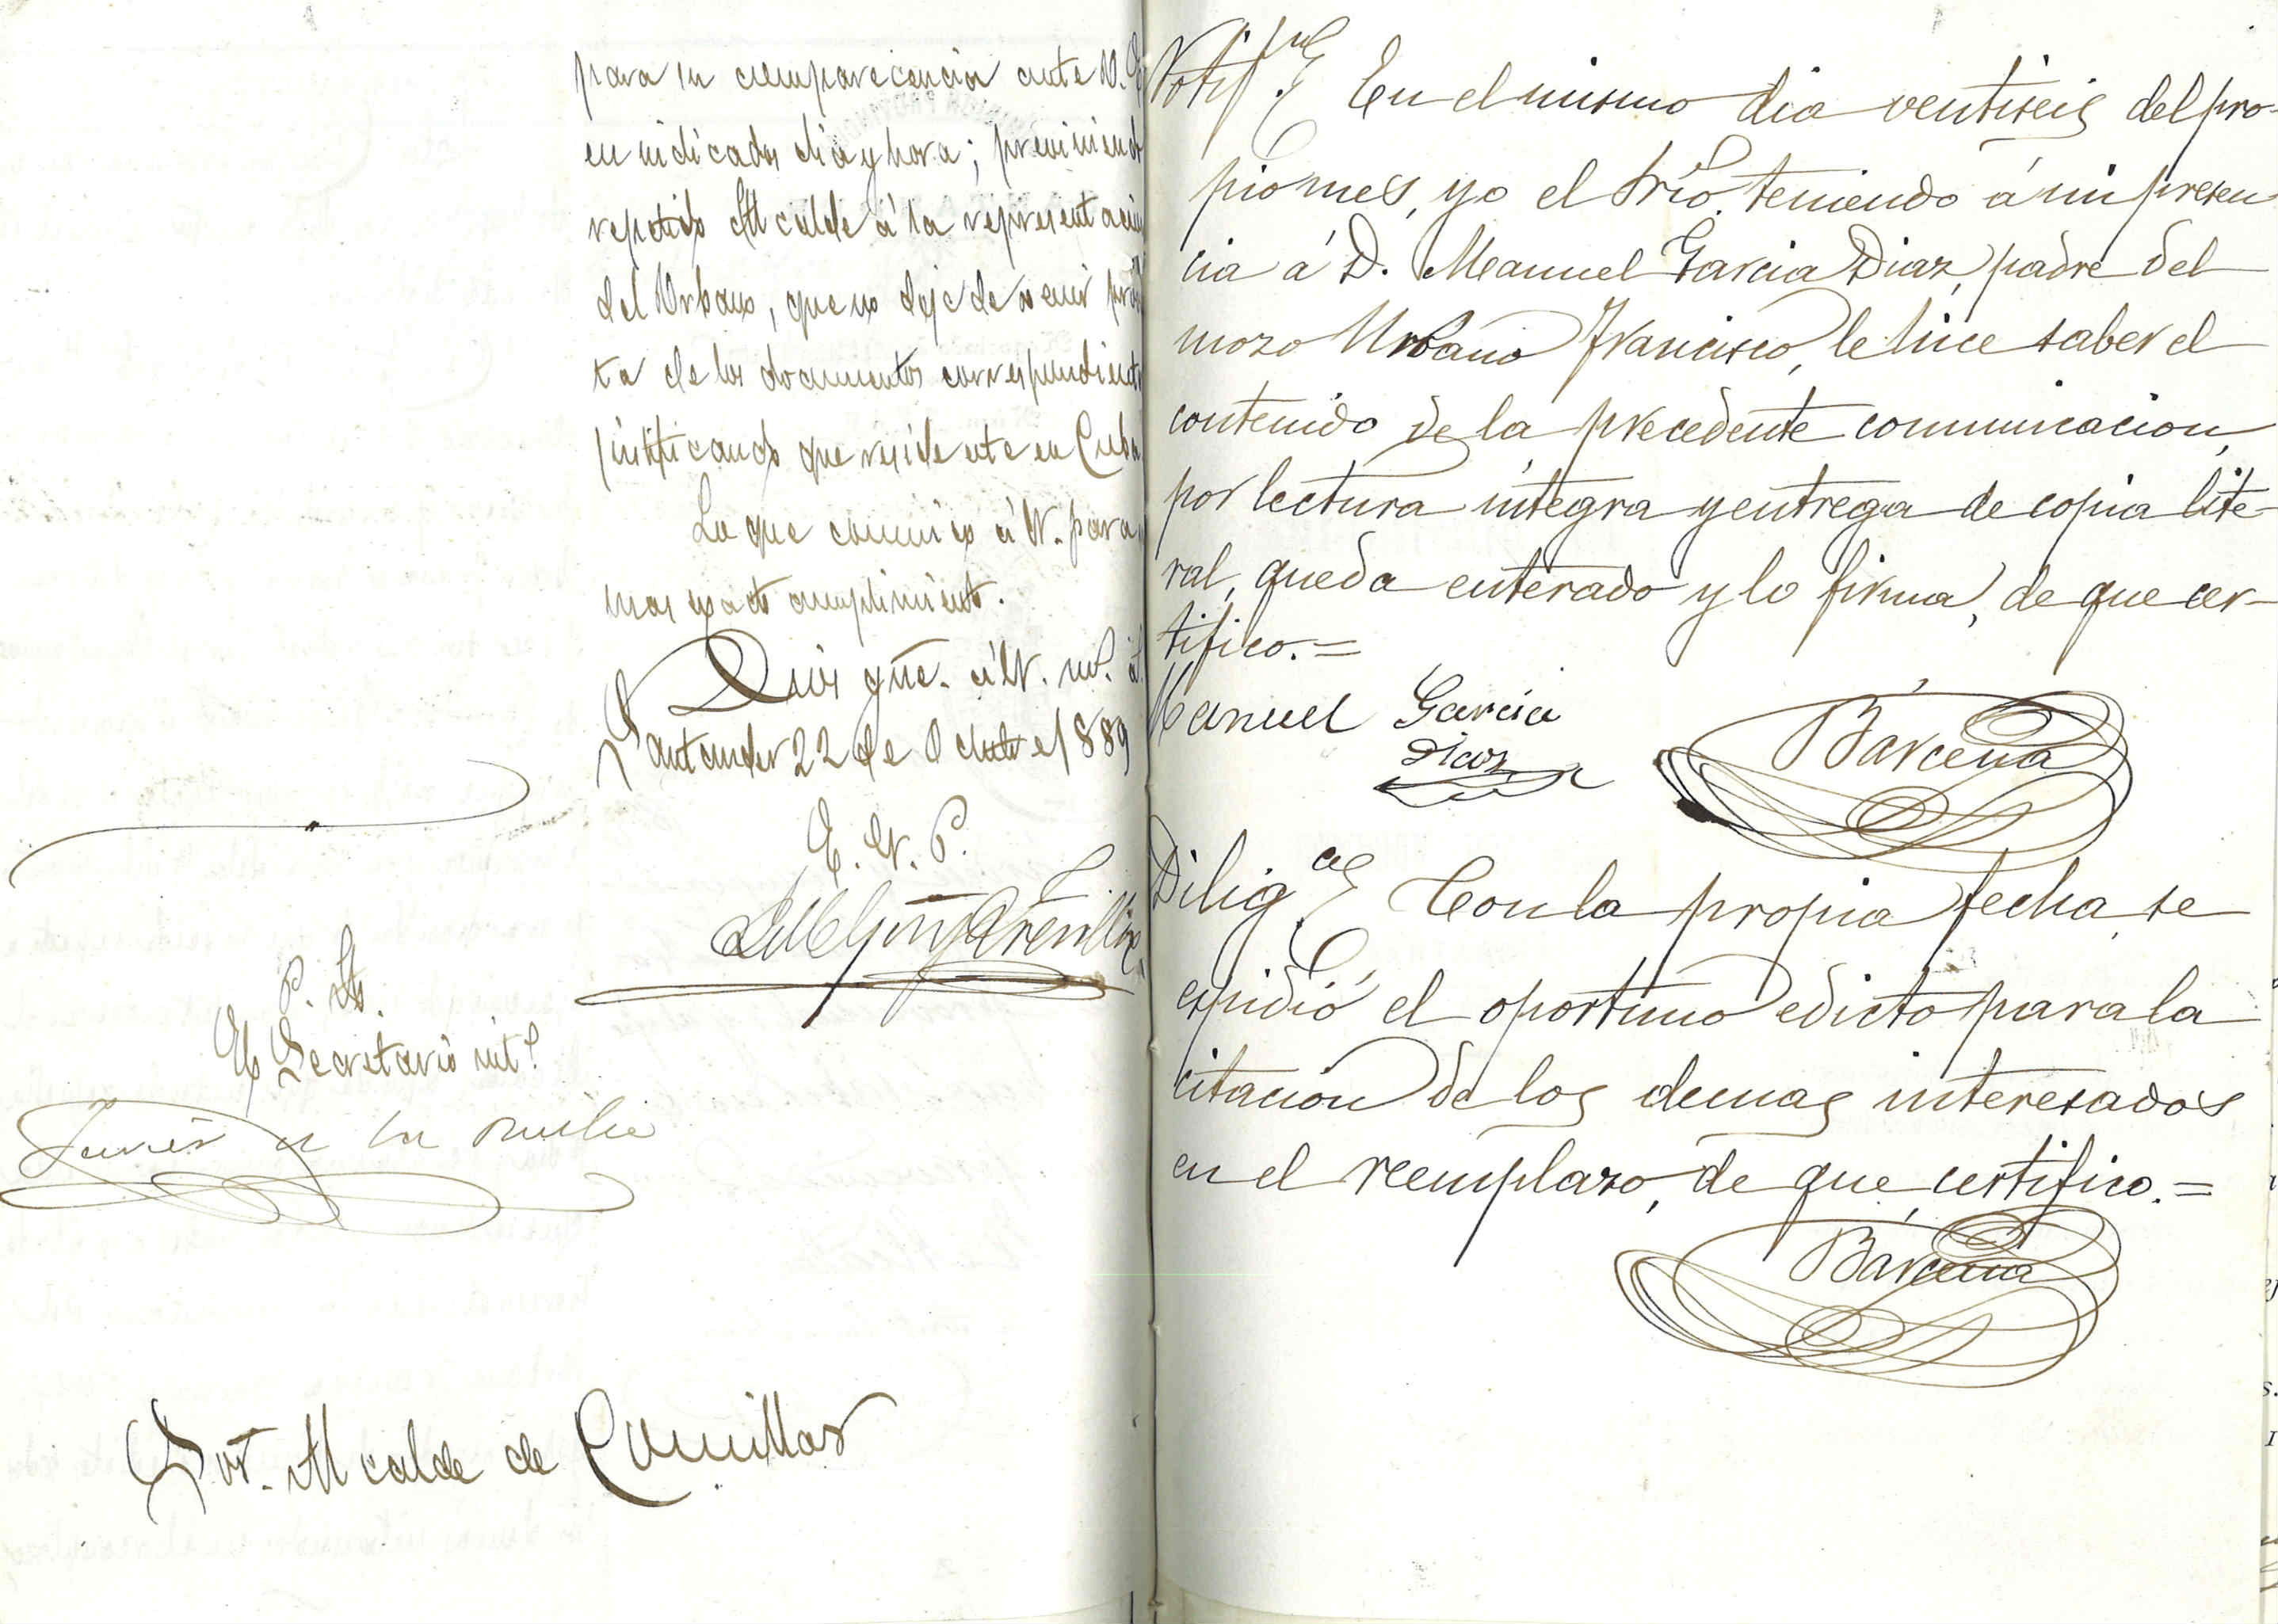 para su comparecencia ante V. E.
en indicados dia y hora; previniendo
repetido Alcalde á la representacion
del Urbano, que no deje de venir provis
ta de los documentos correspondientes
justificando que reside este en Cuba.
Lo que comunico á V. para su
mas exacto cumplimiento.
Dios gue. á V. ms. as.
Santander 22 de Octubre 1889
E. V. P.
P. A.
El Secretario int.º
Sor. Alcalde de Comillas
Notifon. En el mismo dia ventiseis del pro-
pio mes, yo el Srio. teniendo á mi presen
cia á D. Manuel Garcia Diaz, padre del
mozo Urbano Francisco, le hice saber el
contenido de la precedente comunicacion,
por lectura integra y entrega de copia lite-
ral, queda enterado y lo firma, de que cer-
tifico.=
Manuel Garcia
Diaz
Bárcena
Diligca. Con la propia fecha se
espidió el oportuno edicto para la
citacion de los demas interesados
en el reemplazo, de que certifico.=
Bárcena